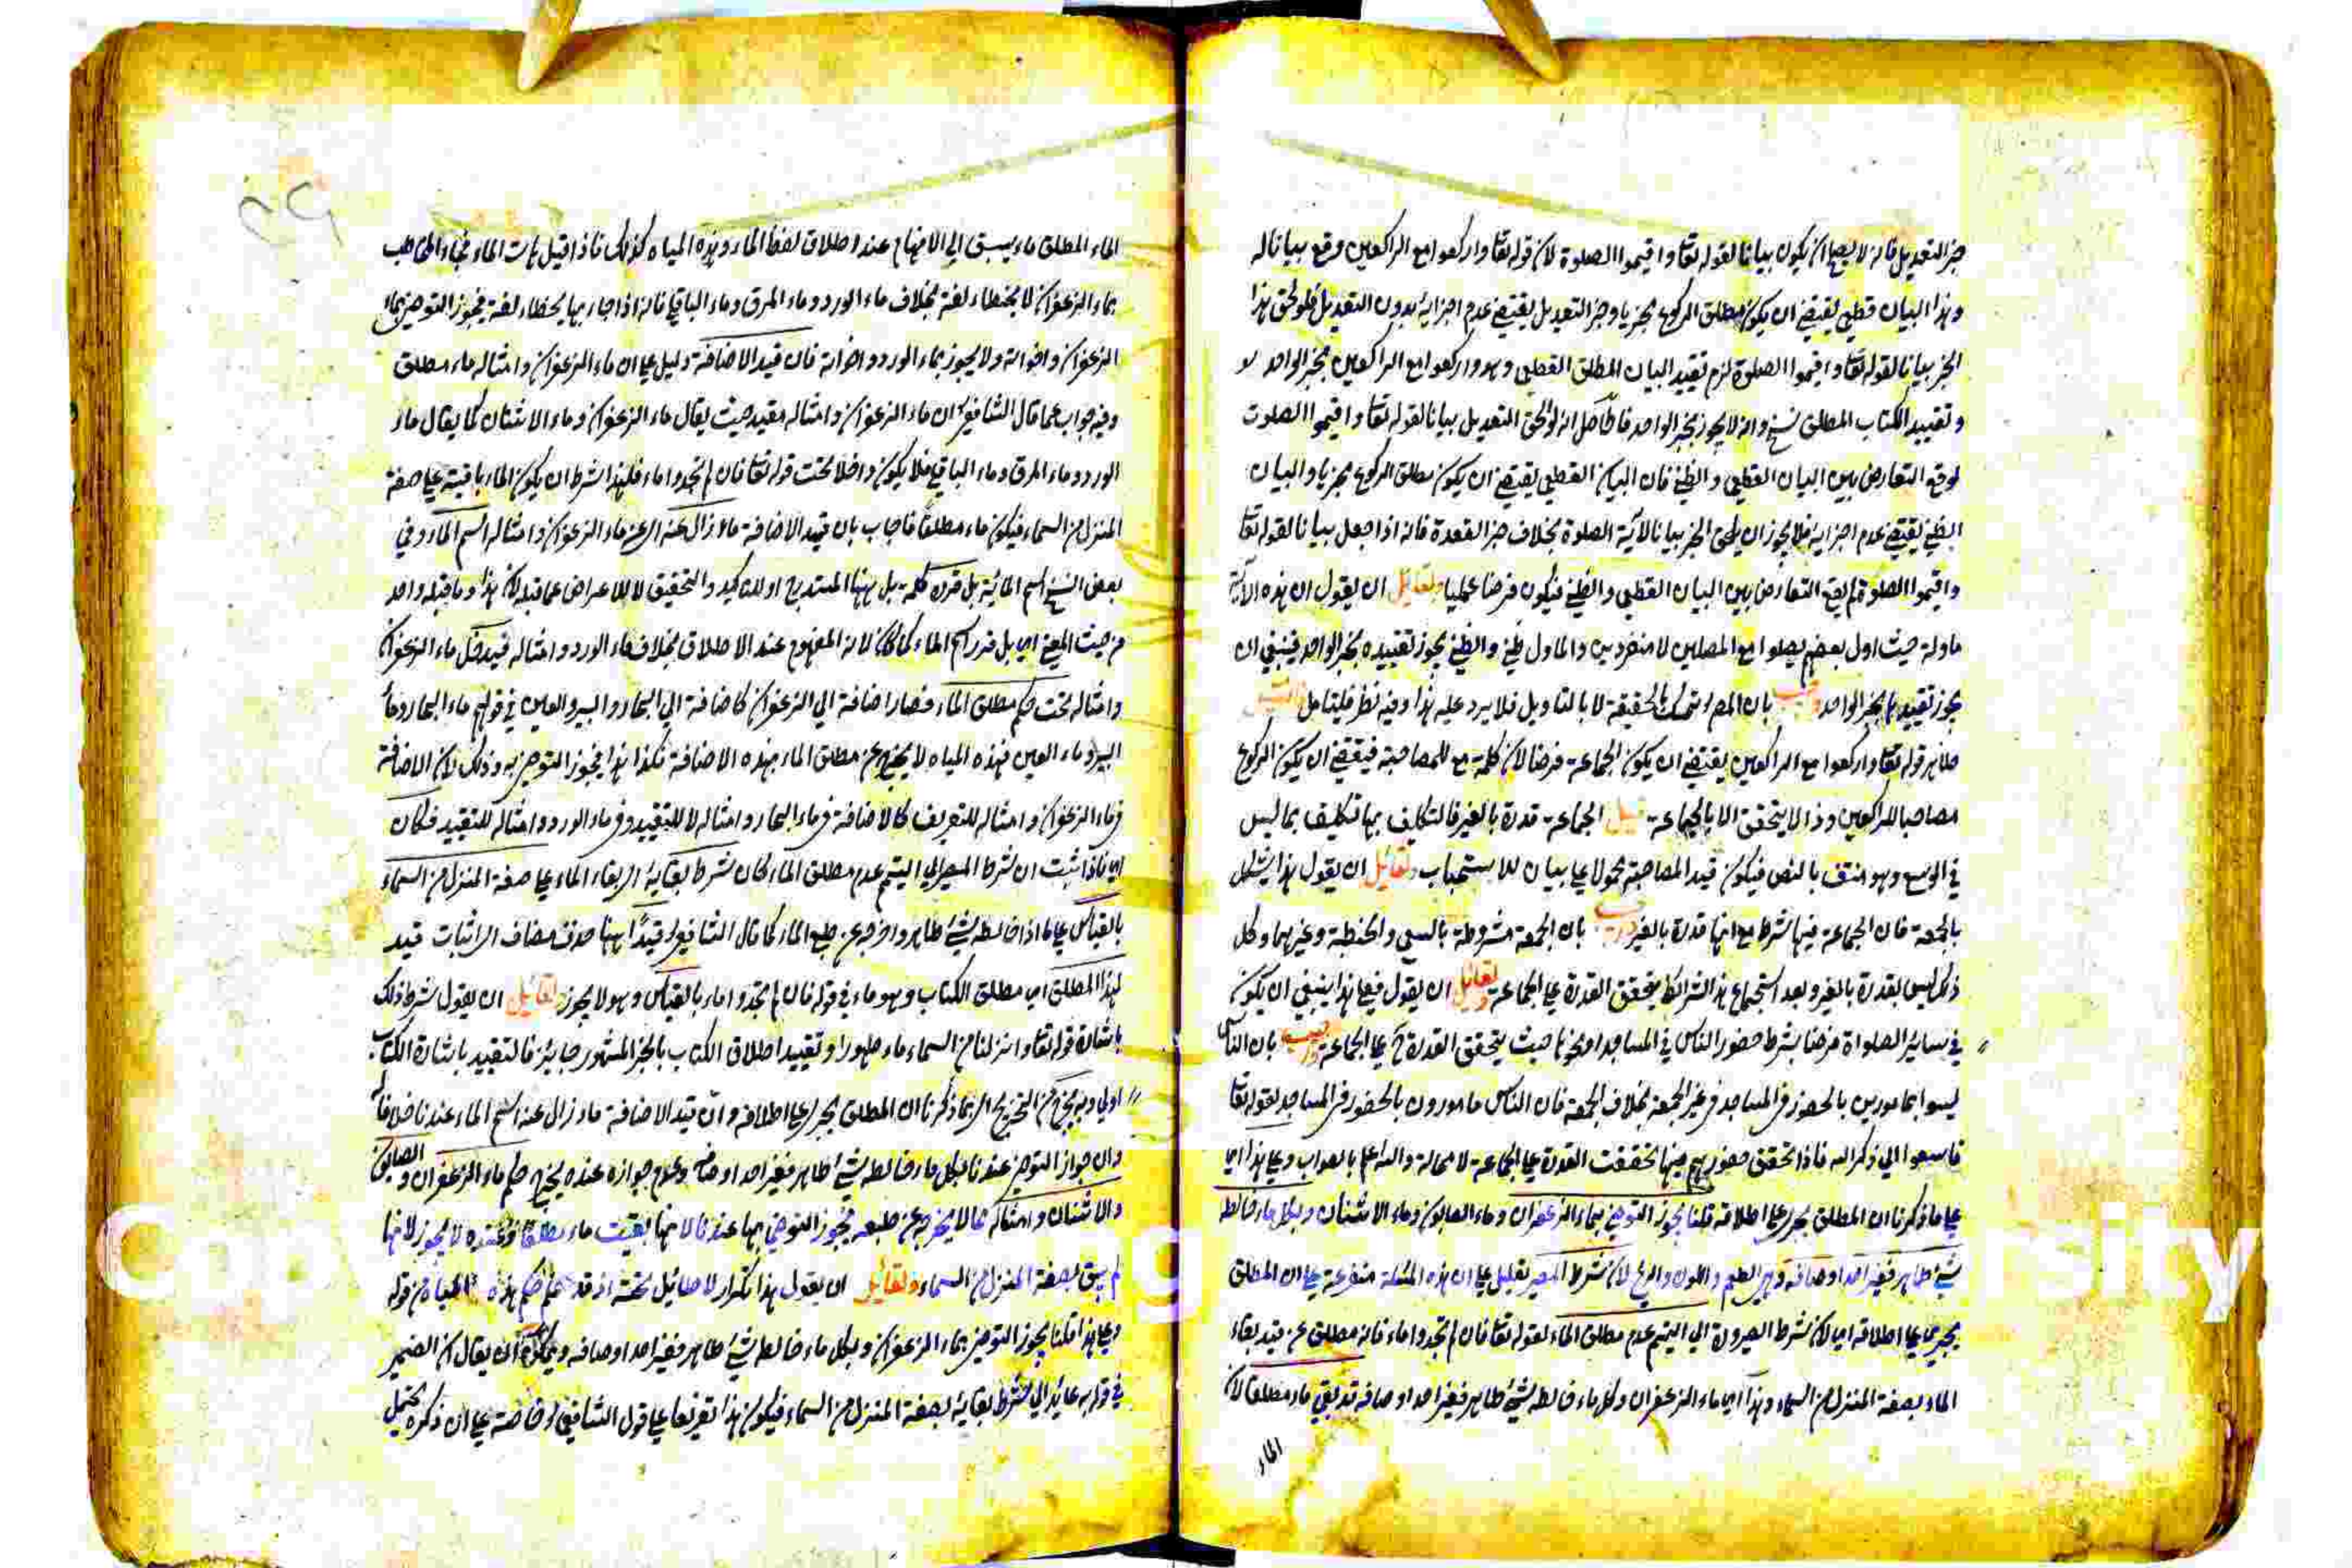 خبر التعديل فانه لا يصلح ان يكون بيانا لقوله تعا واقيموا الصلوة لان قوله تعا واركعوا مع الراكعين وقع بيانا له
وهذا البيان قطعي يقتضي ان يكون مطلق الركوع مجزيا وخبر التعديل يقتضي عدم اجزائه بدون التعديل فلو لحق هذا
الخبر بيانا لقوله تعا واقيموا الصلوة لزم تقييد البيان المطلق القطعي وهو واركعوا مع الراكعين بخبر الواحد
وتقييد الكتاب المطلق نسخ وانه لا يجوز بخبر الواحد فالحاصل انه لو لحق التعديل بيانا لقوله تعا واقيموا الصلوت
لوقع التعارض بين البيان القطعي والظني فان البيان القطعي يقتضي ان يكون مطلق الركوع مجزيا والبيان
الظني يقتضي عدم اجزائه فلا يجوز ان يلحق الخبر بيانا لآية الصلوة بخلاف خبر القعدة فانه اذا جعل بيانا لقوله تعا
واقيموا الصلوة لم يقع التعارض بين البيان القطعي والظني فيكون فرضا عمليا ولقائل ان يقول ان هذه الآية
ماولة حيث اول بعضهم صلوا مع المصلين لا منفردين والماول ظني والظني يجوز تقييده بخبر الواحد فينبغي ان
يجوز تقييدها بخبر الواحد واجيب بان المص تمسك بالحقيقة لا بالتاويل فلا يرد عليه هذا وفيه نظر فليتامل
ظاهر قوله تعا واركعوا مع الراكعين يقتضي ان يكون الجماعة فرضا لان كلمة مع للمصاحبة فيقتضي ان يكون الركوع
مصاحبا للراكعين وذا لا يتحقق الا بالجماعة قيل الجماعة قدرة بالغير فالتكليف بها تكليف بما ليس
في الوسع وهو منتف بالنص فيكون قيد المصاحبة محمولا على بيان للاستحباب ولقائل ان يقول هذا يشكل
بالجمعة فان الجماعة فيها شرط مع انها قدرة بالغير واجيب بان الجمعة مشروطة بالسعي والخطبة وغيرهما وكل
ذلك ليس بقدرة بالغير وبعد استجماع هذه الشرائط يتحقق القدرة على الجماعة ولقائل ان يقول فعلى هذا ينبغي ان يكون
في سائر الصلواة فرضا بشرط حضور الناس في المساجد او نحوها حيث يتحقق القدرة على الجماعة واجيب بان الناس
ليسوا بمامورين بالحضور في المساجد في غير الجمعة بخلاف الجمعة فان الناس مامورون بالحضور في المساجد لقوله تعا
فاسعوا الى ذكر الله فاذا تحقق حضورهم فيها تحققت القدرة على الجماعة لا محالة والله اعلم بالصواب وعلى هذا اي
على ما ذكرنا ان المطلق يجري على اطلاقه قلنا يجوز التوضي بماء الزعفران وماء الصابون وماء الاشنان وبكل ماء خالطه
شيء طاهر فغير احد اوصافه وهي الطعم واللون والريح لان شرط المصير تعليل على ان هذه المسئلة متفرعة على ان المطلق
يجري على اطلاقه اي لان شرط الصيرورة الى التيمم عدم مطلق الماء لقوله تعا فان لم تجدوا ماء فانه مطلق عن قيد بقاء
الماء بصفة المنزل من السماء وهذا اي ماء الزعفران وكل ماء خالطه شيء طاهر فغير احد اوصافه قد بقي ماء مطلقا لان
الماء
الماء المطلق ماء يسبق الى الافهام عند اطلاق لفظ الماء وهذه المياه كذلك فاذا قيل هات الماء فجاء المخاطب
بماء الزعفران لا يخطاء لغة بخلاف ماء الورد وماء المرق وماء الباقي فانه اذا جاء بها يخطاء لغة فيجوز التوضي بماء
الزعفران واخواته ولا يجوز بماء الورد واخواته فان قيد الاضافة دليل على ان ماء الزعفران وامثاله ماء مطلق
وفيه جواب عما قال الشافعي ان ماء الزعفران وامثاله مقيد حيث يقال ماء الزعفران وماء الاشنان كما يقال ماء
الورد وماء المرق وماء الباقي فلا يكون داخلا تحت قوله تعا فان لم تجدوا ماء فلهذا شرط ان يكون الماء باقية على صفة
المنزل من السماء فيكون ماء مطلقا فاجاب بان قيد الاضافة ما زال عنه اي عن ماء الزعفران وامثاله اسم الماء وفي
بعض النسخ اسم المائية بل قرره كلمة بل ههنا للتدرج او للتاكيد والتحقيق لا للاعراض عما قبله لان هذا وما قبله واحد
من حيث المعنى اي بل قرر اسم الماء كما كان لانه المفهوم عند الاطلاق بخلاف ماء الورد وامثاله فيدخل ماء الزعفران
وامثاله تحت حكم مطلق الماء فصار اضافة الى الزعفران كاضافة الى البحار والبير والعين في قولهم ماء البحار وماء
البير وماء العين فهذه المياه لا يخرج عن مطلق الماء بهذه الاضافة فكذا هذا فيجوز التوضي به وذلك لان الاضافة
في ماء الزعفران وامثاله للتعريف كالاضافة في ماء البحار وامثاله لا للتقييد وفي ماء الورد وامثاله للتقييد فكان
اي فاذا ثبت ان شرط المصير الى التيمم عدم مطلق الماء كان شرط بقائه اي بقاء الماء على صفة المنزل من السماء
بالقياس على ما اذا خالطه شيء طاهر واخرجه عن طبع الماء كما قال الشافعي قيدا ههنا حذف مضاف اي اثبات قيد
لهذا المطلق اي مطلق الكتاب وهو ماء في قوله فان لم تجدوا ماء بالقياس وهو لا يجوز ولقائل ان يقول شرط ذلك
باشارة قوله تعا وانزلنا من السماء ماء طهورا وتقييد اطلاق الكتاب بالخبر المشهور جايز فالتقييد باشارة الكتاب
اولى وبه يخرج اي بما ذكرنا ان المطلق يجري على اطلاقه وان قيد الاضافة ما زال عنه اسم الماء عندنا خلافا له
وان جواز التوضي عندنا بكل ماء خالطه شيء طاهر فغير احد اوصافه وعدم جوازه عنده يخرج حكم ماء الزعفران والصابون
والاشنان وامثاله مما لا يخرجه عن طبعه فيجوز التوضي بها عندنا لانها بقيت ماء مطلقا وعنده لا يجوز لانها
لم يبق بصفة المنزل من السماء ولقائل ان يقول هذا تكرار لا طائل تحته اذ قد علم حكم هذه المياه من قوله
وعلى هذا قلنا يجوز التوضي بماء الزعفران وبكل ماء خالطه شيء طاهر فغير احد اوصافه ويمكن ان يقال ان الضمير
في قوله به عائد الى شرط بقائه بصفة المنزل من السماء فيكون هذا تفريعا على قول الشافعي خاصة على ان ذكره يحتمل